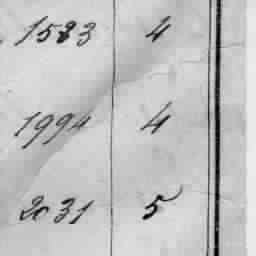 1583 4
1994 4
2031 5